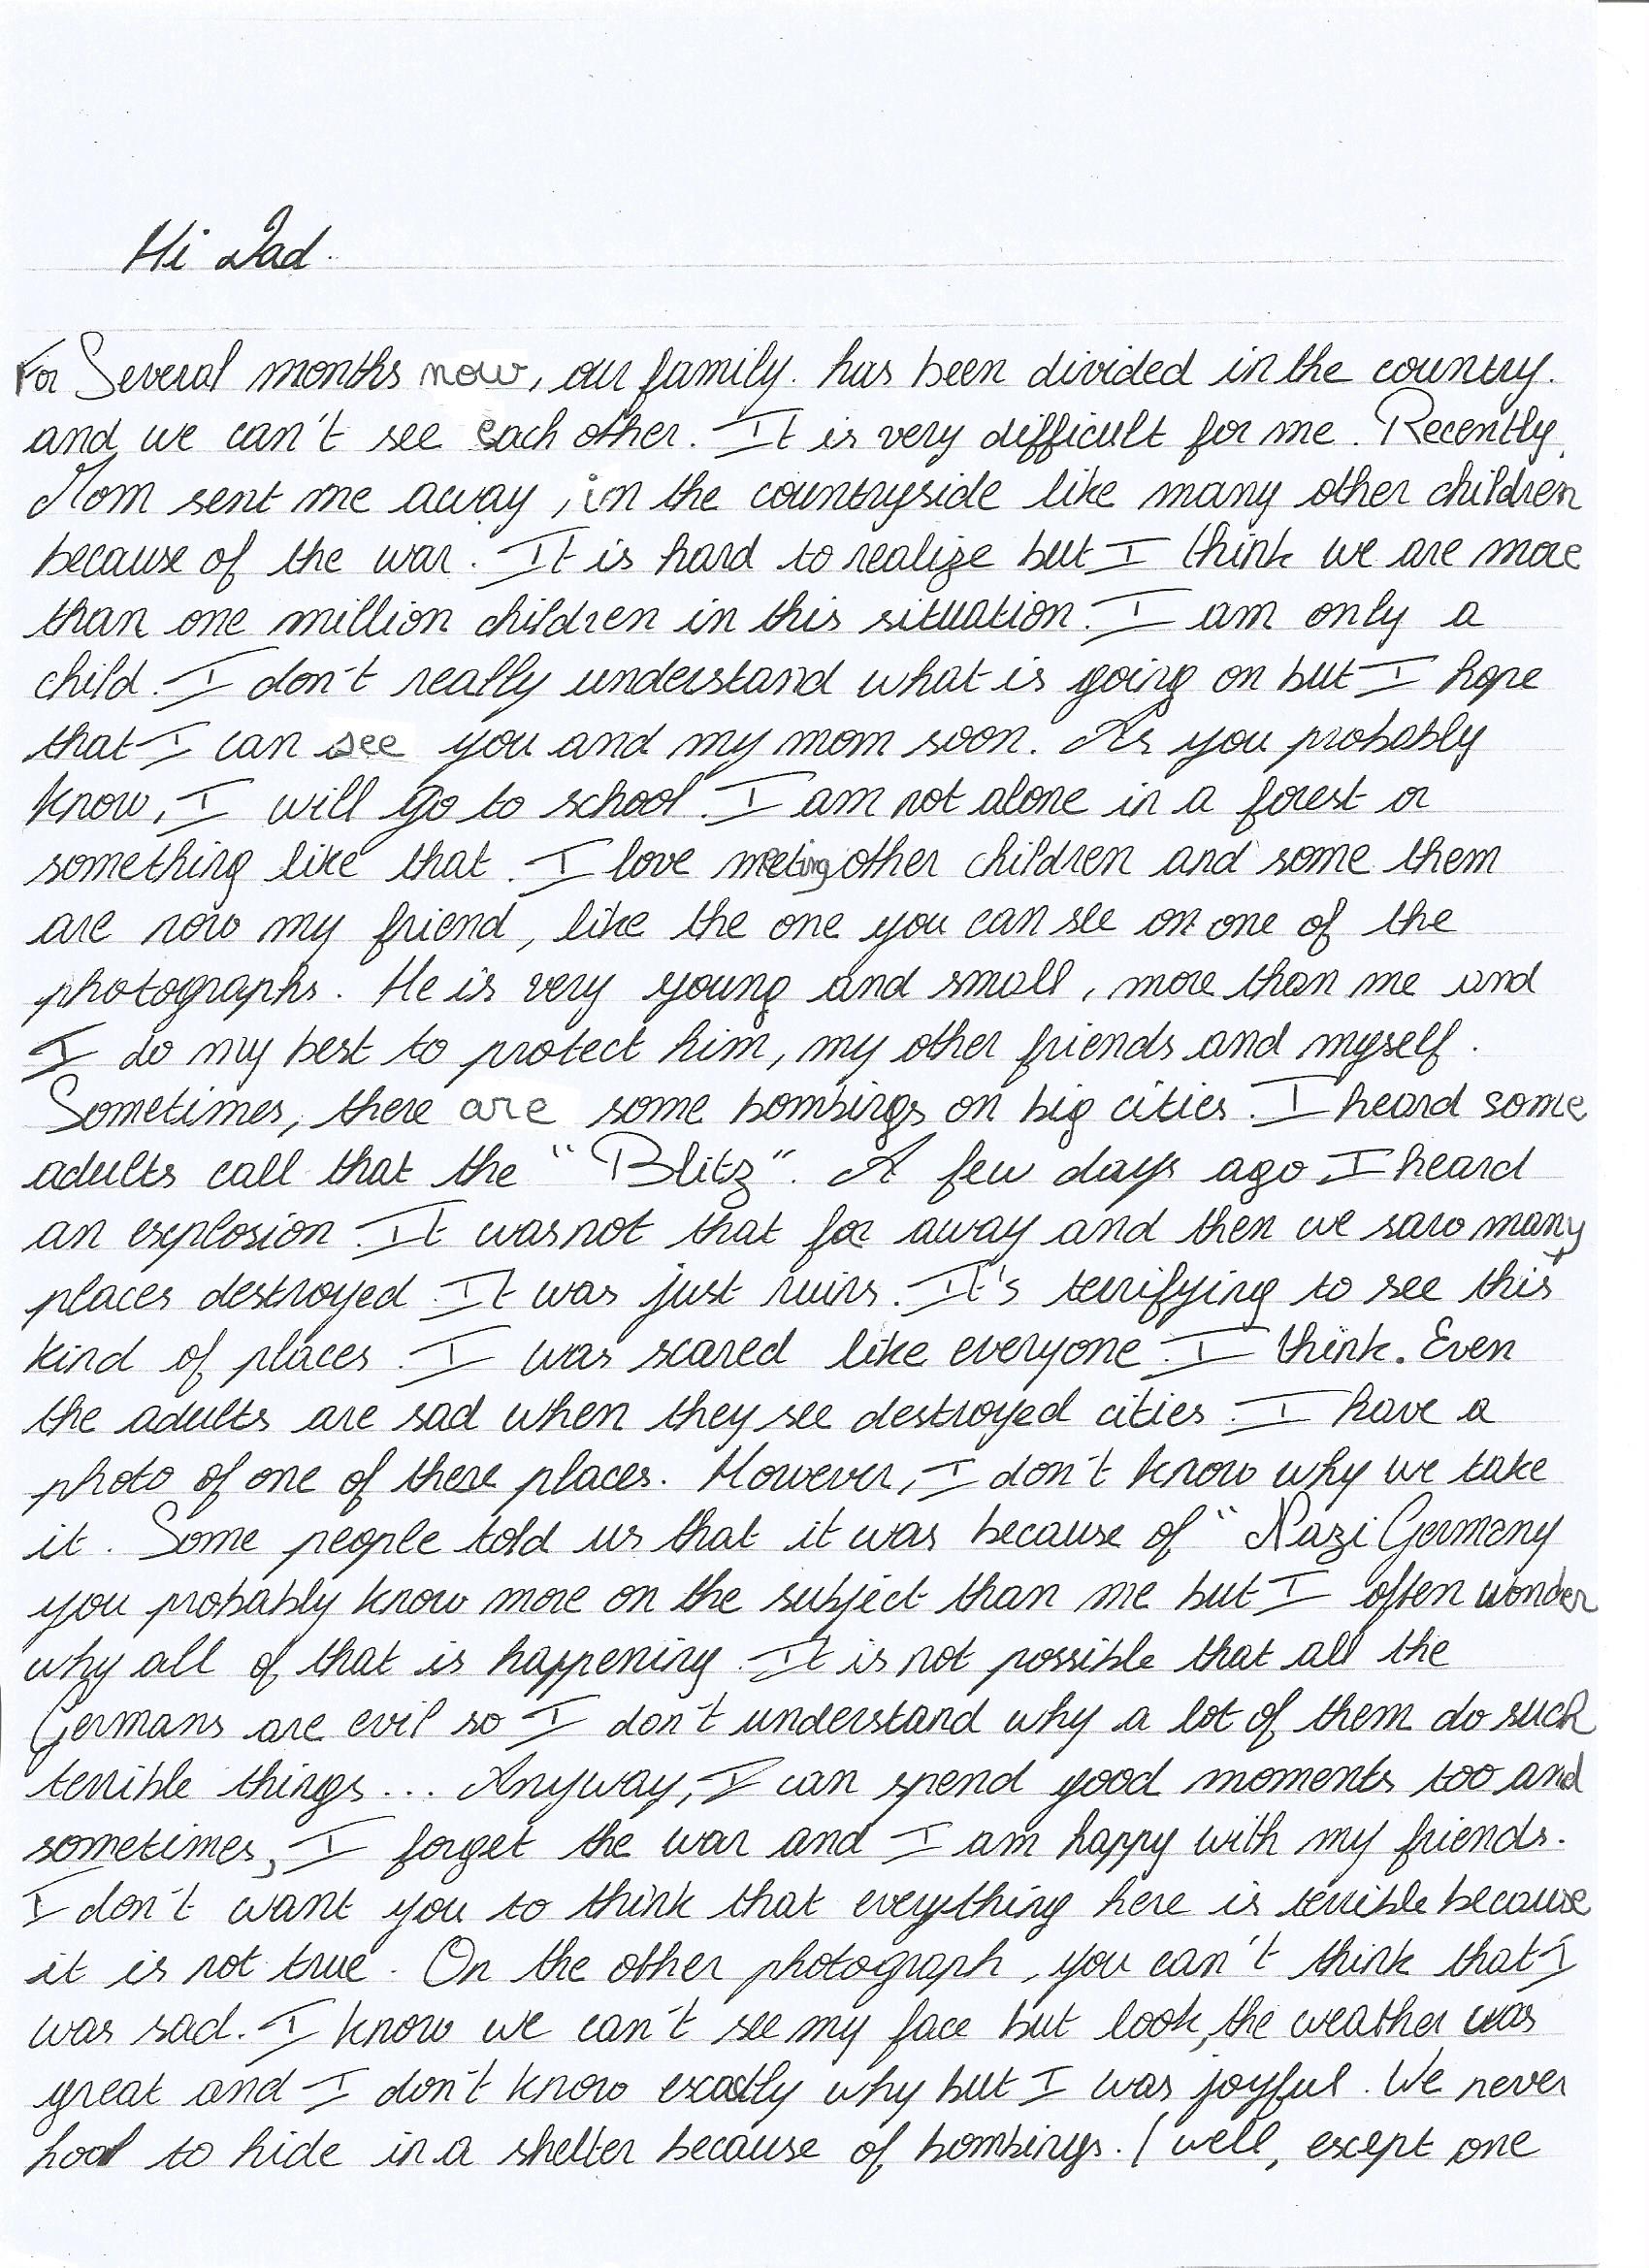 Hi Dad.
For Several months now, our family. has been divided in the country.
and we can't see each other. It is very difficult for me. Recently,
Mom sent me away, in the countryside like many other children
because of the war. It is hard to realize but I think we are more
than one million children in this situation. I am only a
child. I don't really understand what is going on but I hope
that I can see you and my mom soon. As you probably
know, I will go to school. I am not alone in a forest or
something like that. I love meeting other children and some them
are now my friend, like the one you can see on one of the
photographs. He is very young and small, more than me and
I do my best to protect him, my other friends and myself.
Sometimes, there are some bombings on big cities. I heard some
adults call that the "Blitz". A few days ago I heard
an explosion. It was not that far away and then we saw many
places destroyed. It was just ruins. It's terrifying to see this
kind of places. I was scared like everyone I think. Even
the adults are sad when they see destroyed cities. I have a
photo of one of these places. However, I don't know why we take
it. Some people told us that it was because of "Nazi Germany
you probably know more on the subject than me but I often wonder
why all of that is happening. It is not possible that all the
Germans are evil so I don't understand why a lot of them do such
terrible things... Anyway, I can spend good moments too and
sometimes, I forget the war and I am happy with my friends.
I don't want you to think that everything here is terrible because
it is not true. On the other photograph, you can't think that I
was sad. I know we can't see my face but look, the weather was
great and I don't know exactly why but I was joyful. We never
had to hide in a shelter because of bombings. (well, except one